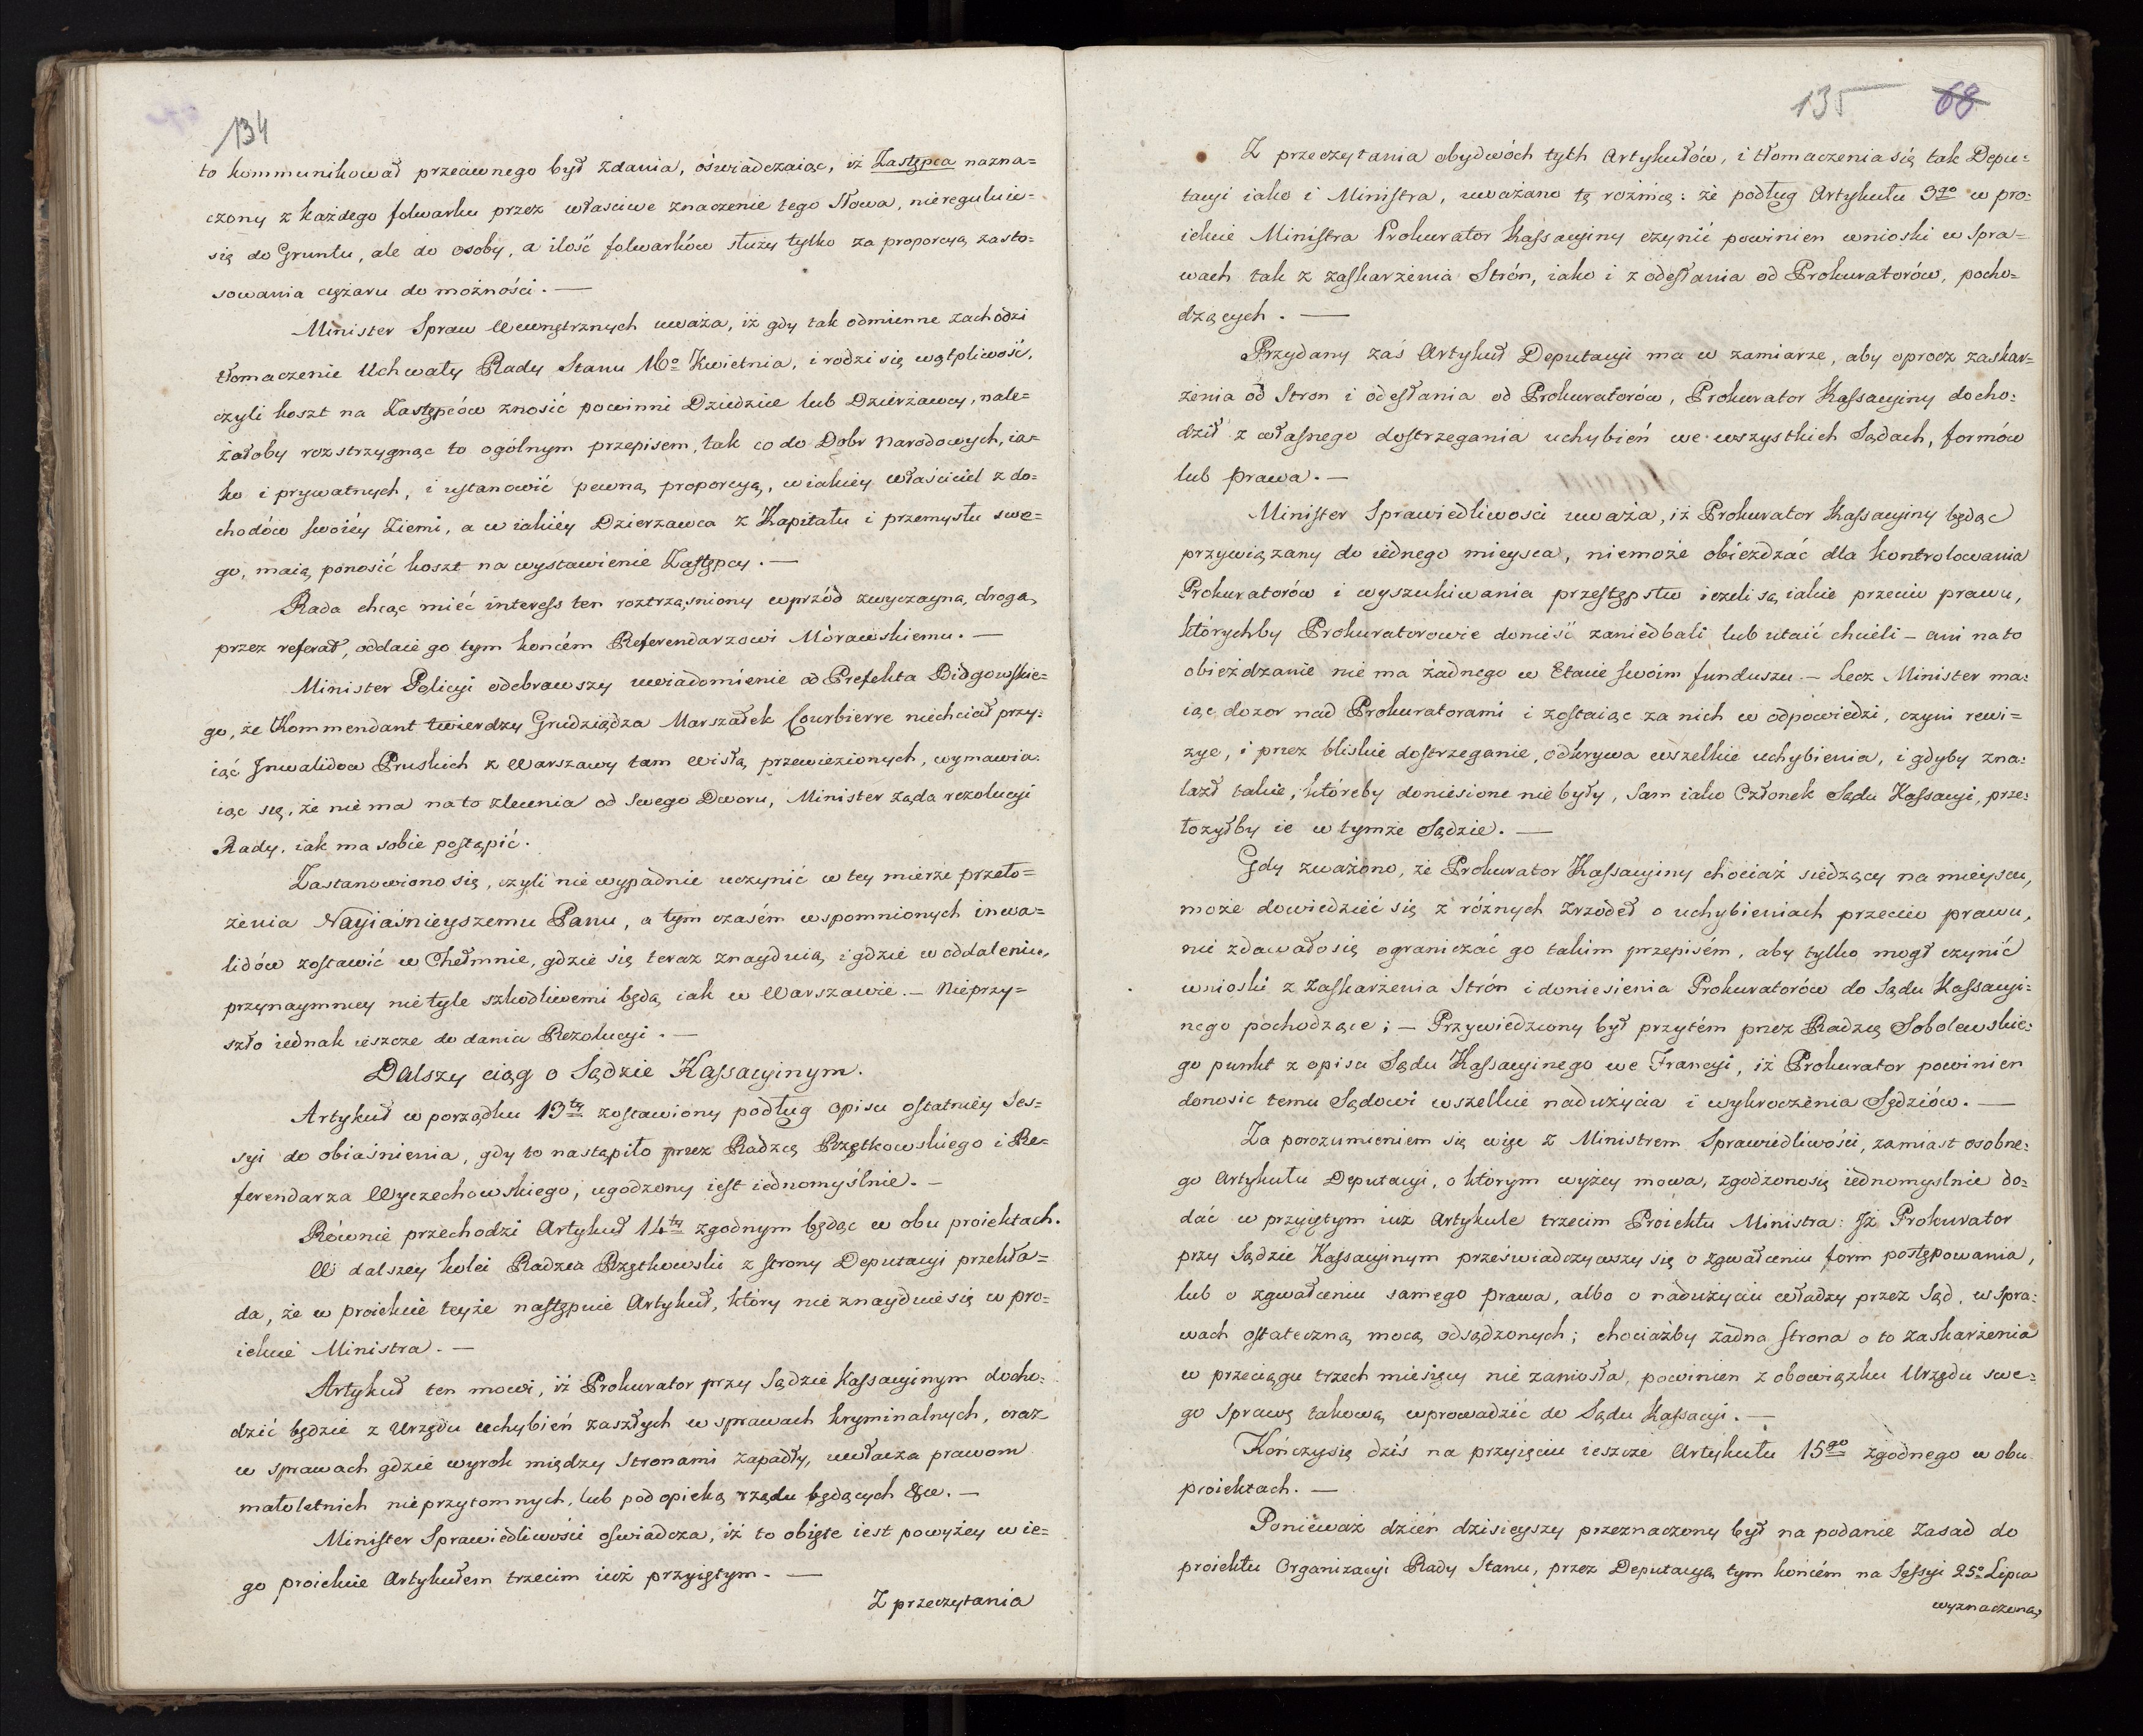 134
to kommunikował przeciwnego był zdania, oświadczaiąc, iż Zastępca nazna=
czony z każdego folwarku przez właściwe znaczenie tego Słowa, niereguluie=
się do Gruntu, ale do osoby, a ilość folwarków służy tylko za proporcyą zasto=
sowania ciężaru do możności. —
Minister Spraw Wewnętrznych uważa, iż gdy tak odmienne zachodzi
tłomaczenie Uchwały Rady Stanu 16º Kwietnia, i rodzi się wątpliwość,
czyli koszt na Zastępców znosić powinni Dziedzice lub Dzierżawcy, nale=
żałoby rozstrzygnąć to ogólnym przepisem, tak co do Dobr Narodowych, ia=
ko i prywatnych, i ustanowić pewną proporcyą, w iakiey właściciel z do=
chodów swoiéy Ziemi, a w iakiéy Dzierzawca z Kapitału i przemysłu swe=
go, maią ponosić koszt na wystawienie Zastępcy. —
Rada chcąc mieć interess ten roztrząśniony wprzód zwyczayną drogą,
przez referat, oddaie go tym końcém Referendarzowi Morawskiemu. —
Minister Policyi odebrawszy uwiadomienie od Prefekta Bidgowskie=
go, że Kommendant twierdzy Grudziądza Marszałek Courbierre niechciał przy=
iąć Inwalidow Pruskich z Warszawy tam Wisłą przewiezionych, wymawia=
iąc się, że nie ma na to zlecenia od Swego Dworu, Minister żąda rezolucyi
Rady, iak ma sobie postąpić.
Zastanowiono się, czyli nie wypadnie uczynić w tey mierze przeło=
żenia Nayiaśnieyszemu Panu, a tym czasém wspomnionych inwa=
lidów zostawić w Chełmnie, gdzie się teraz znayduią, i gdzie w oddaleniu,
przynaymniey nie tyle szkodliwemi będą iak w Warszawie. — Nieprzy=
szło iednak ieszcze do dania Rezolucyi. —
Dalszy ciąg o Sądzie Kassacyinym.
Artykuł w porządku 13ty zostawiony podług opisu ostatniéy Ses=
syi do obiaśnienia, gdy to nastąpiło przez Radzcę Rzętkowskiego i Re=
ferendarza Wyczechowskiego, ugodzony iest iednomyślnie. —
Równie przechodzi Artykuł 14ty zgodnym będąc w obu proiektach.
W dalszey kolei Radzca Rzętkowski z strony Deputacyi przekła=
da, że w proiekcie teyże następuie Artykuł, który nie znayduie się w pro=
iekcie Ministra. —
Artykuł ten mowi, iż Prokurator przy Sądzie Kassacyinym docho=
dzić będzie z Urzędu uchybień zaszłych w sprawach kryminalnych, oraz
w sprawach gdzie wyrok między Stronami zapadły, uwłacza prawom
małoletnich nieprzytomnych, lub pod opieką rządu będących &c. —
Minister Sprawiedliwości oświadcza, iż to obięte iest powyżey w ie=
go proiekcie Artykułem trzecim iuż przyiętym. —
Z przeczytania
135 68
Z przeczytania obydwóch tych Artykułów, i tłomaczenia się tak Depu=
tacyi iako i Ministra, uważano tę rożnicę: że podług Artykułu 3go w pro=
iekcie Ministra Prokurator Kassacyiny czynić powinien wnioski w Spra=
wach tak z zaskarżenia Strón, iako i z odesłania od Prokuratorów, pocho=
dzących. —
Przydany zaś Artykuł Deputacyi ma w zamiarze, aby oprocz zaskar=
żenia od Stron i odesłania od Prokuratorów, Prokurator Kassacyiny docho=
dził z własnego dostrzegania uchybień we wszystkich Sądach, formów
lub prawa. —
Minister Sprawiedliwości uważa, iż Prokurator Kassacyiny będąc
przywiązany do iednego mieysca, niemoże obiezdzać dla kontrolowania
Prokuratorów i wyszukiwania przestępstw ieżeli są iakie przeciw prawu,
którychby Prokuratorowie donieść zaniedbali lub utaić chcieli — ani na to
obieżdzanie nie ma żadnego w Etacie swoim funduszu. — Lecz Minister ma=
iąc dozor nad Prokuratorami i zostaiąc za nich w odpowiedzi, czyni rewi=
zye, i przez bliskie dostrzeganie, odkrywa wszelkie uchybienia, i gdyby zna=
lazł takie, któreby doniesione nie były, Sam iako Członek Sądu Kassacyi, prze=
łożyłby ie w tymże Sądzie. —
Gdy zważono, że Prokurator Kassacyiny chociaż siedzący na mieyscu,
może dowiedzieć się z różnych źrzodeł o uchybieniach przeciw prawu,
nie zdawało się ograniczać go takim przepisém, aby tylko mogł czynić
wnioski z Zaskarżenia Strón i doniesienia Prokuratorów do Sądu Kassacyi=
nego pochodzące; — Przywiedziony był przytém przez Radzcę Sobolewskie=
go punkt z opisu Sądu Kassacyinego we Francyi, iż Prokurator powinien
donosic temu Sądowi wszelkie nadużycia i wykroczenia Sędziów. —
Za porozumieniem się więc z Ministrem Sprawiedliwości, zamiast osobne=
go Artykułu Deputacyi, o którym wyżey mowa, zgodzono się iednomyslnie do=
dać w przyiętym iuż Artykule trzecim Proiektu Ministra: Iż Prokurator
przy Sądzie Kassacyinym przeświadczywszy się o zgwałceniu form postępowania,
lub o zgwałceniu samego prawa, albo o nadużyciu władzy przez Sąd, w Spra=
wach ostateczną mocą odsądzonych; chociażby żadna strona o to zaskarżenia
w przeciągu trzech miesięcy nie zaniosła, powinien z obowiązku Urzędu swe=
go Sprawę takową wprowadzić do Sądu Kassacyi. —
Kończy się dziś na przyięciu ieszcze Artykułu 15go zgodnego w obu
proiektach. —
Ponieważ dzień dzisieyszy przeznaczony był na podanie Zasad do
proiektu Organizacyi Rady Stanu, przez Deputacyą tym końcém na Sessyi 25º Lipca
wyznaczoną,